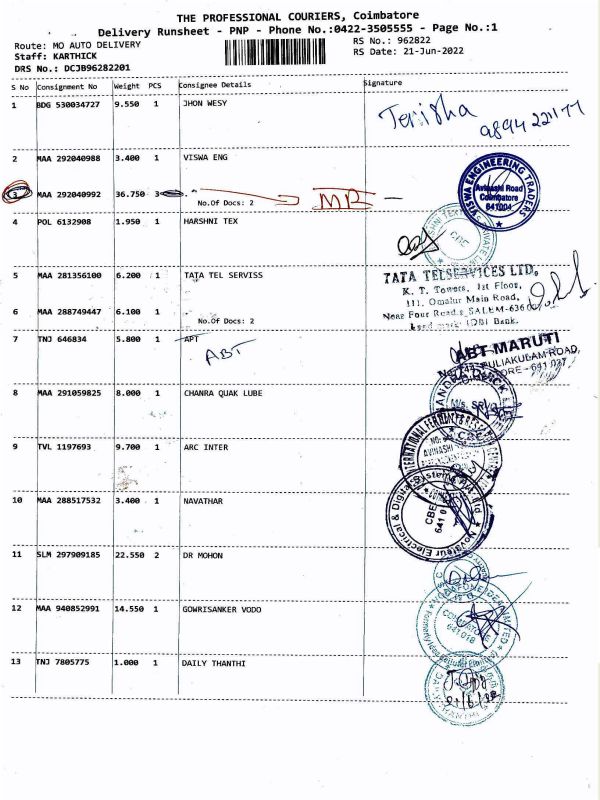 THE PROFESSIONAL COURIERS, Coimbatore
Delivery Runsheet - PNP - Phone No.:0422-3505555 - Page No.:1
Route: MO AUTO DELIVERY RS No.: 962822
Staff: KARTHICK RS Date: 21-Jun-2022
DRS No.: DCJB96282201
S No Consignment No Weight PCS Consignee Details Signature
1 BDG 530034727 9.550 1 JHON WESY
Terisha
2 MAA 292040988 3.400 1 VISWA ENG
VISWA ENGINEERING TRADERS
Avinashi Road
Coimbatore
641004
3 MAA 292040992 36.750 3
No.Of Docs: 2
MR
4 POL 6132908 1.950 1 HARSHNI TEX
5 MAA 281356100 6.200 1 TATA TEL SERVISS
TATA TELSERVICES LTD.
K. T. Towers, 1st Floor,
111, Omalur Main Road,
Near Four Roads, SALEM-636
Land mark IDBI Bank.
6 MAA 288749447 6.100 1
No.Of Docs: 2
7 TNJ 646834 5.800 1 APT
ABT
ABT MARUTI
PULIAKULAM ROAD,
8 MAA 291059825 8.000 1 CHANRA QUAK LUBE
M/s.
9 TVL 1197693 9.700 1 ARC INTER
AVINASHI
10 MAA 288517532 3.400 1 NAVATHAR
Electrical & Digital Systems Pvt. Ltd
CBE
641 0
11 SLM 297909185 22.550 2 DR MOHON
12 MAA 940852991 14.550 1 GOWRISANKER VODO
641 018
13 TNJ 7805775 1.000 1 DAILY THANTHI